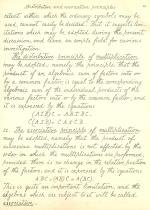 Distribution and association principles
extent within which the ordinary symbols may be
used, cannot easily be decided. But it suggests
itself which may be adopted during the present
discussion, and forms an ample field for curious
investigation.
The distribution principle of multiplication
may be adopted, namely, the principle that the
product of an algebraic sum of factors into
by a common factor, is equal to the corresponding
algebraic sum of the individual products of the
various factors into or by the common factor, and
it is expressed by the equations
(A±B)C = AC±BC.
C(A±B) = CA±CB.
The association principle of multiplication
may be adopted, namely that the product of
successive multiplications is not affected by the
order in which the multiplications are performed,
provided there is no change in the relative position
of the factors, and it is expressed by the equations
ABC = (AB)C = A(BC).
This is quite an important limitation, and the
algebras which are subject to it will be called
associative.